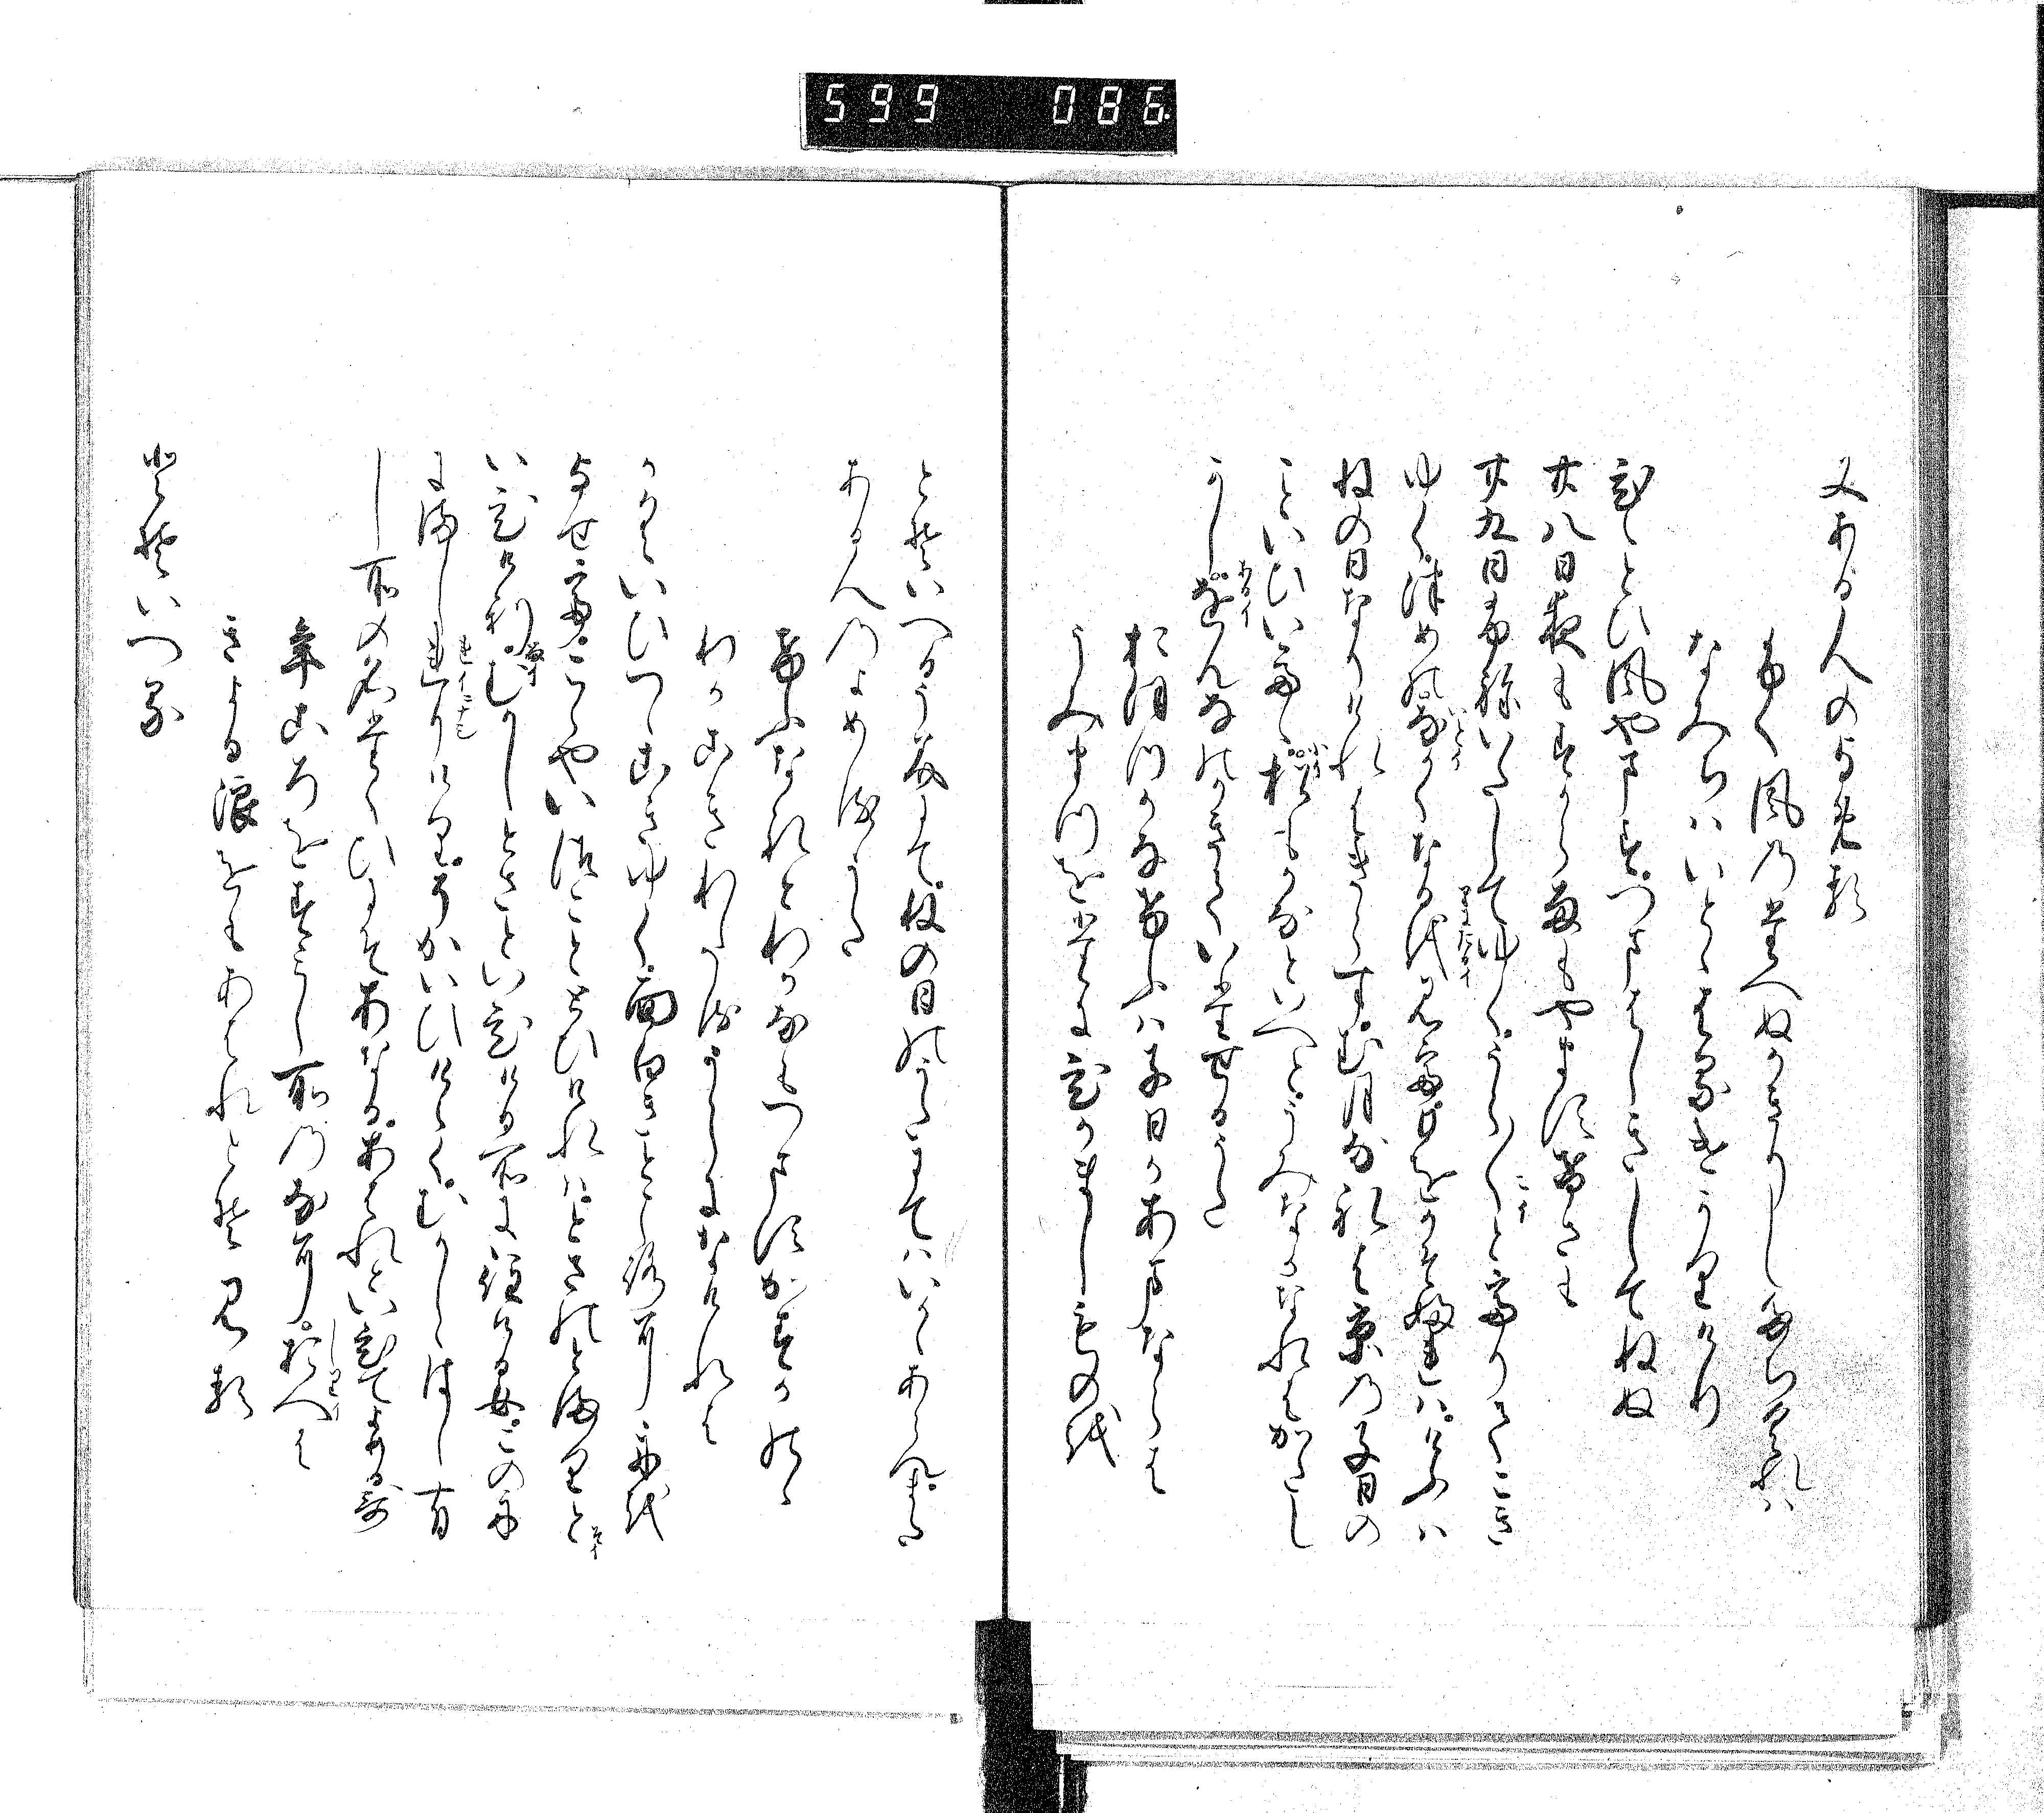 599 086
又ある人のよめる
ふく風のたえぬかきりしたちくれは
なみちはいとゝはるけかりけり
ひゝとひ風やますつまはしきしてねぬ
廿八日夜もすからあめもやますけさも
廿九日ふねいたしてゆくうら〳〵とてりてこき
ゆくつめのなかくなるをみて日をかそふれはけふは
ねの日なりけれはきらすむ月なれは京の子日の
こといひいてゝ松もかなといへとうみなかなれはかたし
かしをんなのかきていたせるうた
おほつかなけふは子日かあまならは
うみまつをたにひかましものを
とそいへるうみにて子の日のうたにてはいかゝあらん又
ある人のよめるうた
けふなれとわかなもつますかすかのゝ
わかこきわたるうらになけれは
かくいひつゝこきゆく面白きところに舟を
よせてこゝやいつことゝひけれはとさのとまりと
いひけりむかしとさといひける所にすみける女この舟
にましれりけりそかいひけらくむかしはし有
し所の名たくひにそあなるあはれといひてよめる哥
年ころをすみし所の名にしおへは
きよる浪をもあはれとそ見る
とそいへる